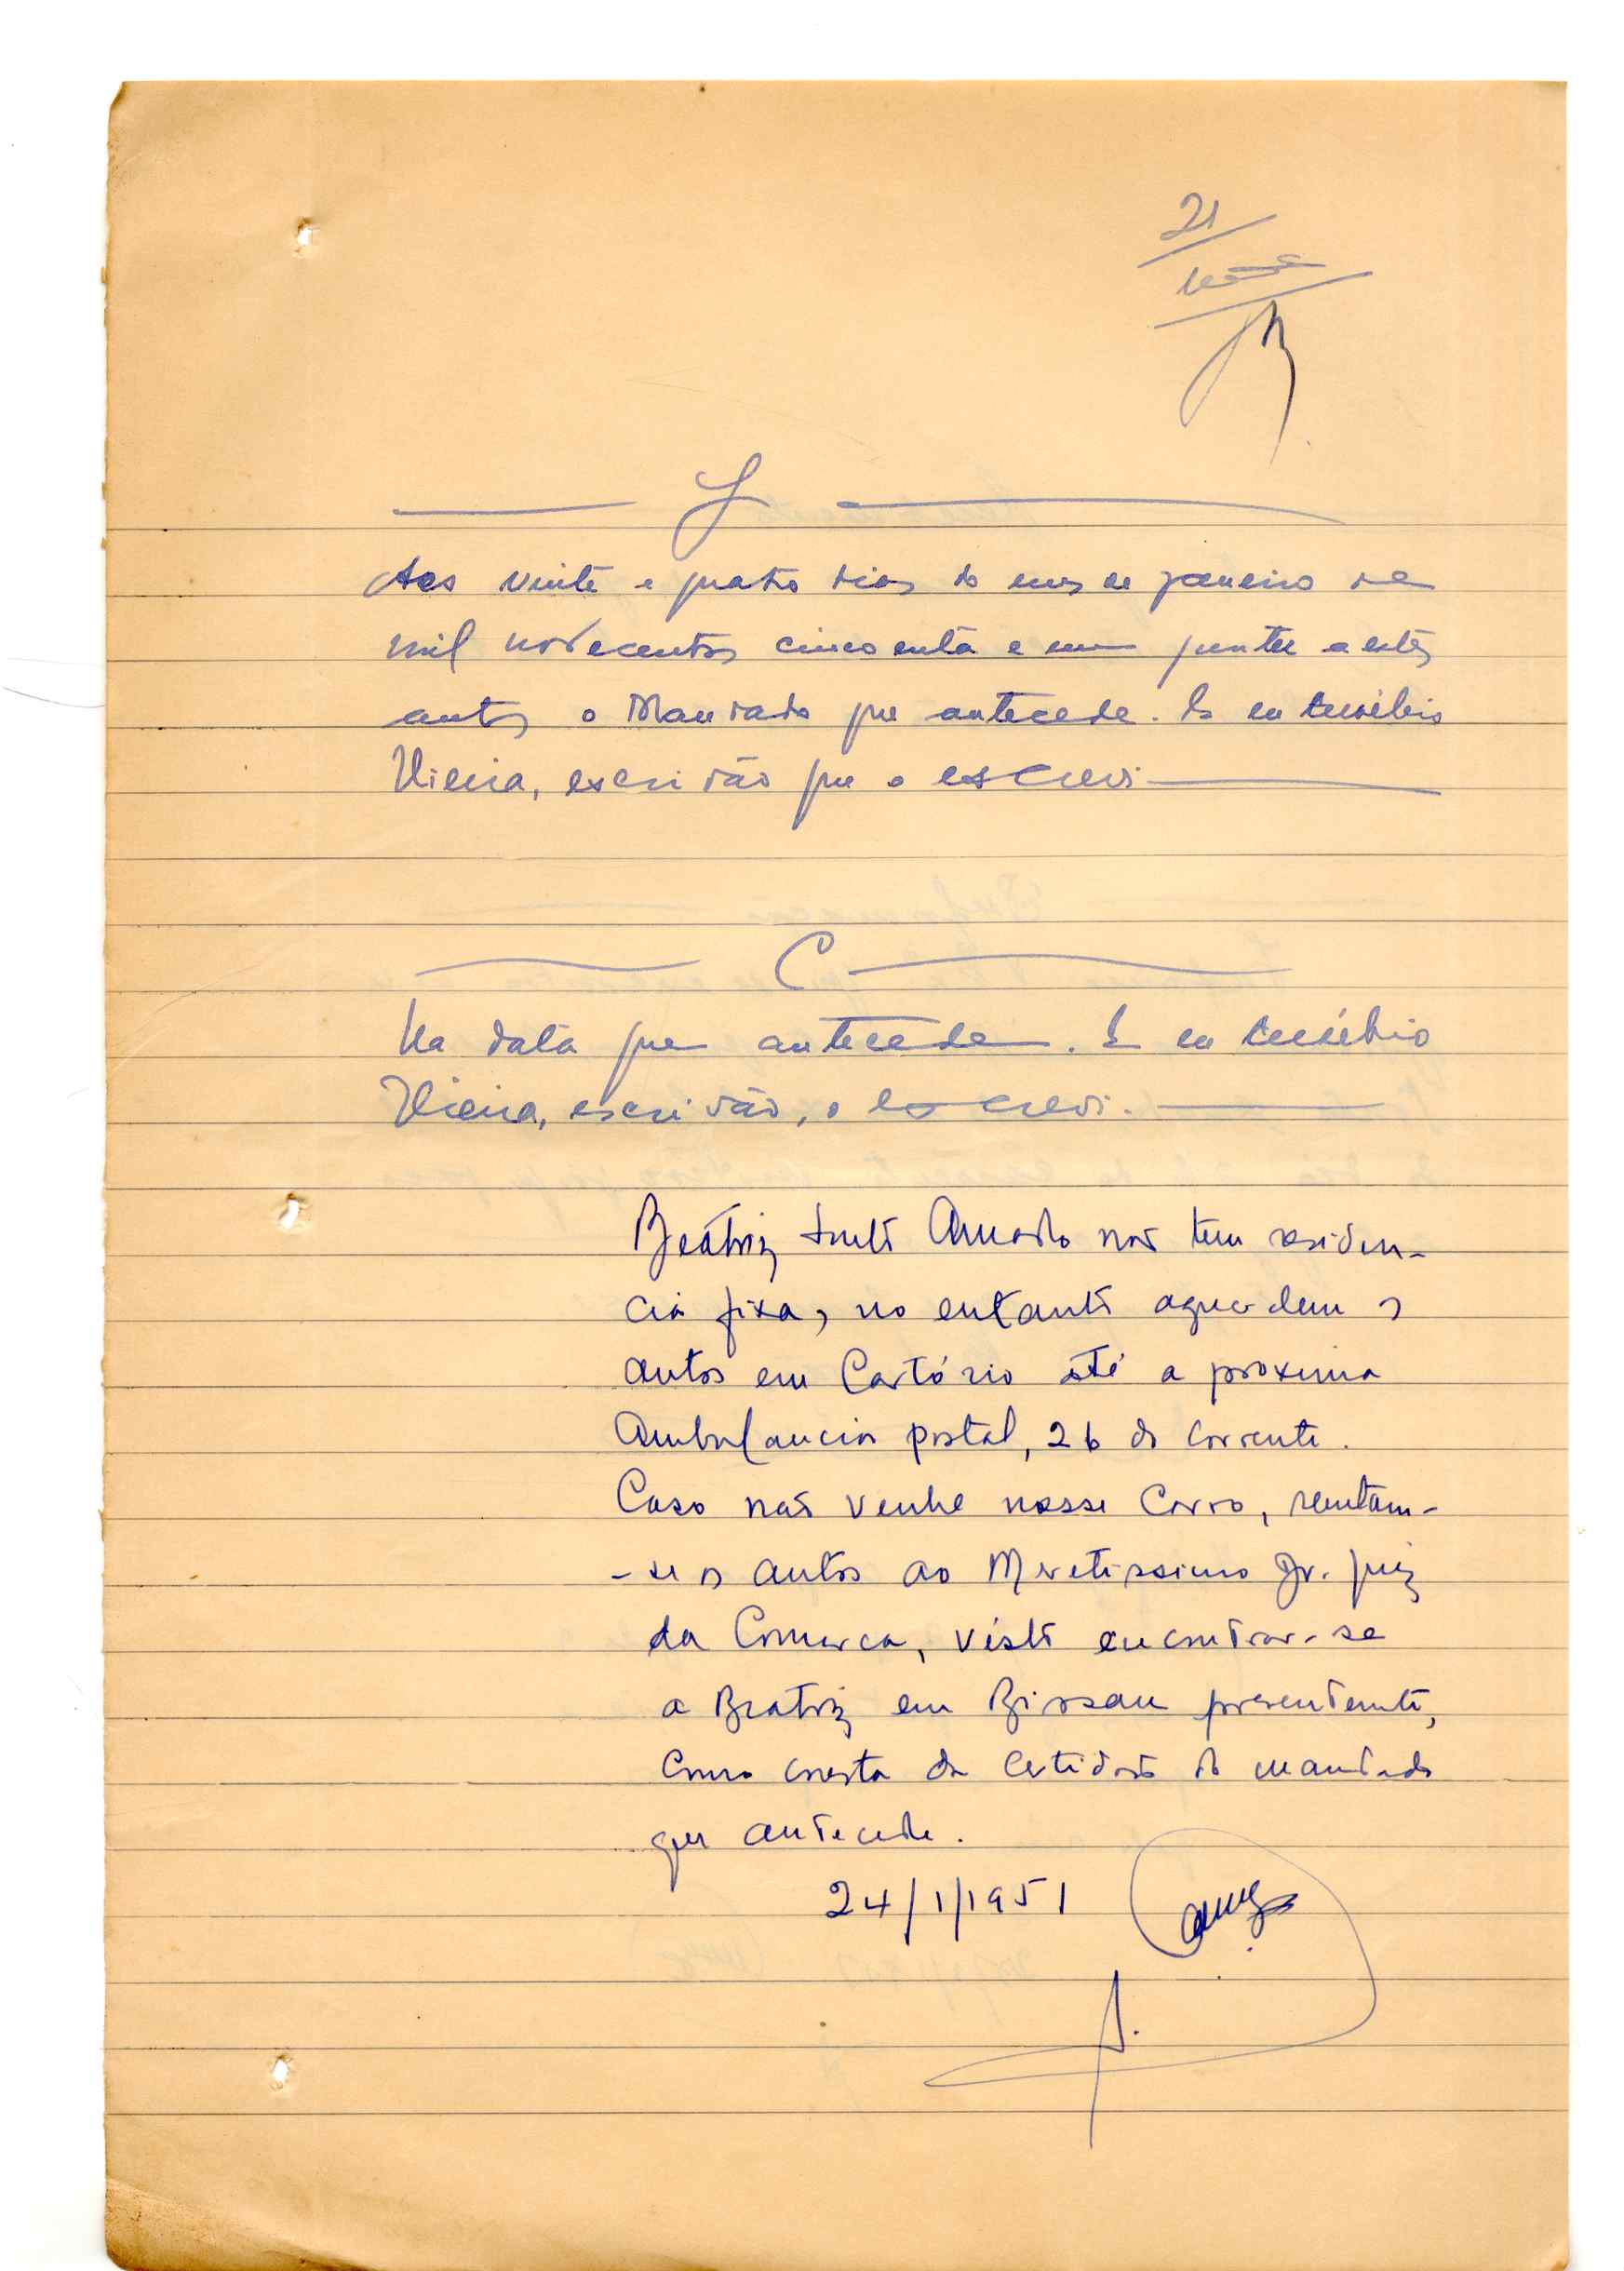 21
J
Aos vinte e quatro dias do mes de janeiro de
mil novecentos cincoenta e um juntei a estes
autos o Mandado que antecede. E eu Eusébio
Vieira, escrivão que o escrevi
C
Na data que antecede. E eu Eusébio
Vieira, escrivão, o escrevi.
Beátriz Amado não tem residen-
cia fixa, no entanto aguardem os
autos em Cartório até a proxima
Ambulancia postal, 26 do corrente.
Caso não venha nesse Carro, remetam-
-se os autos ao Meretissimo Dr. Juiz
da Comarca, visto encontrar-se
a Beatriz em Bissau presentemente,
como consta da Certidão do mandado
que antecede.
24/1/1951